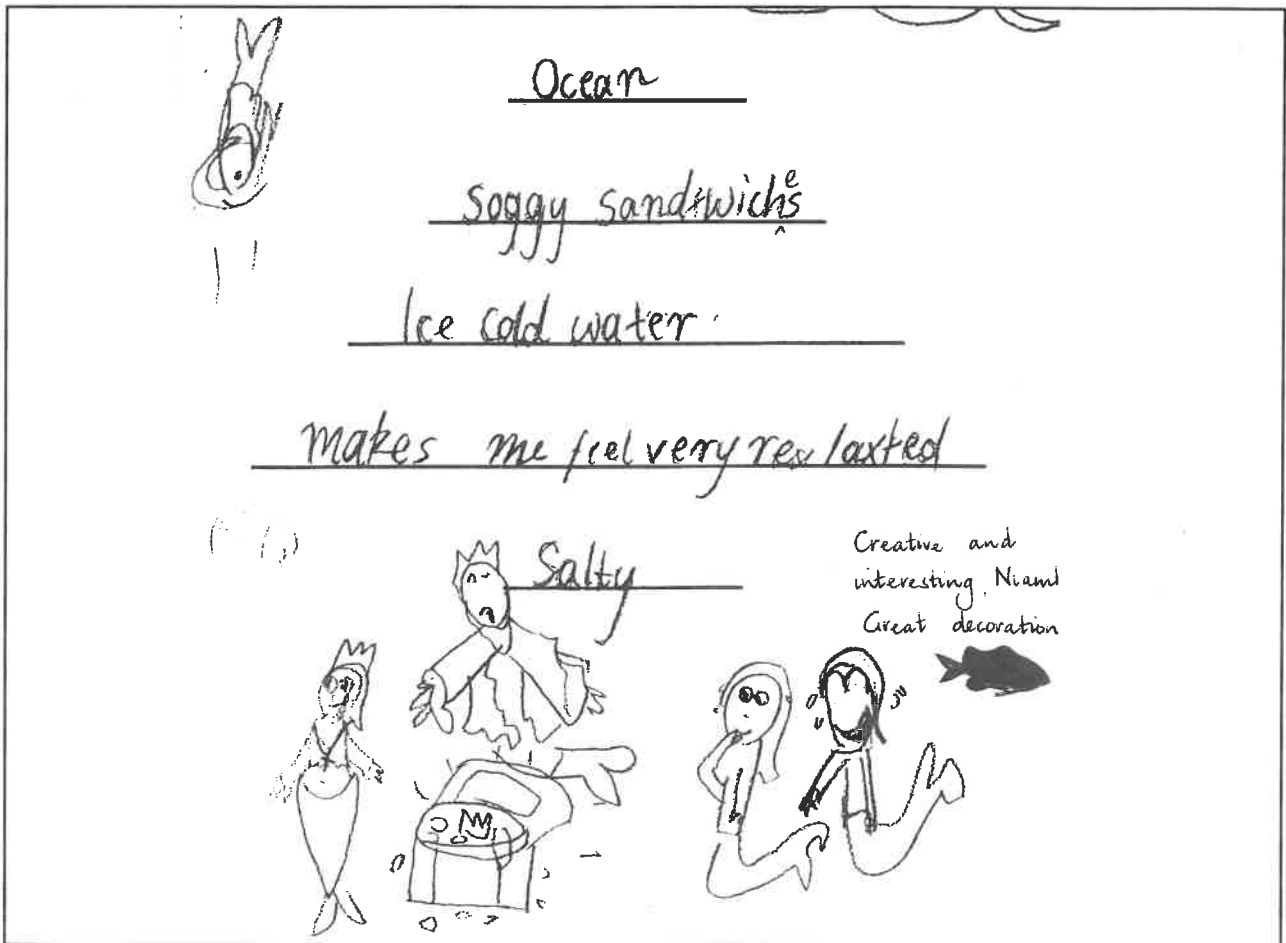 Ocean
soggy sandwiches
Ice cold water
makes me feel very relaxted
Salty
Creative and
interesting, Niamh
Great decoration